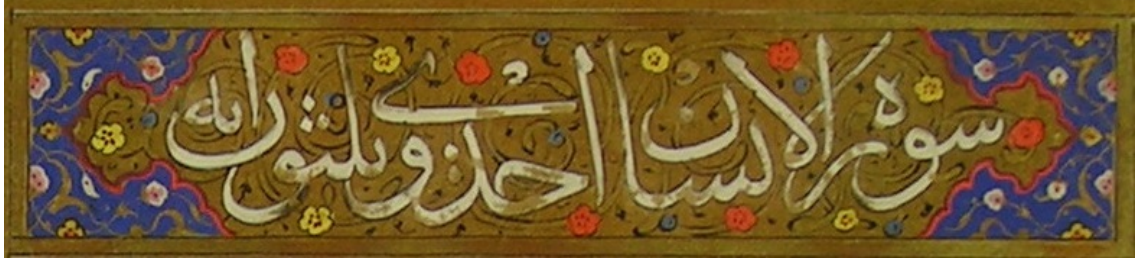 سورة الانسان احدی وثلثون اية